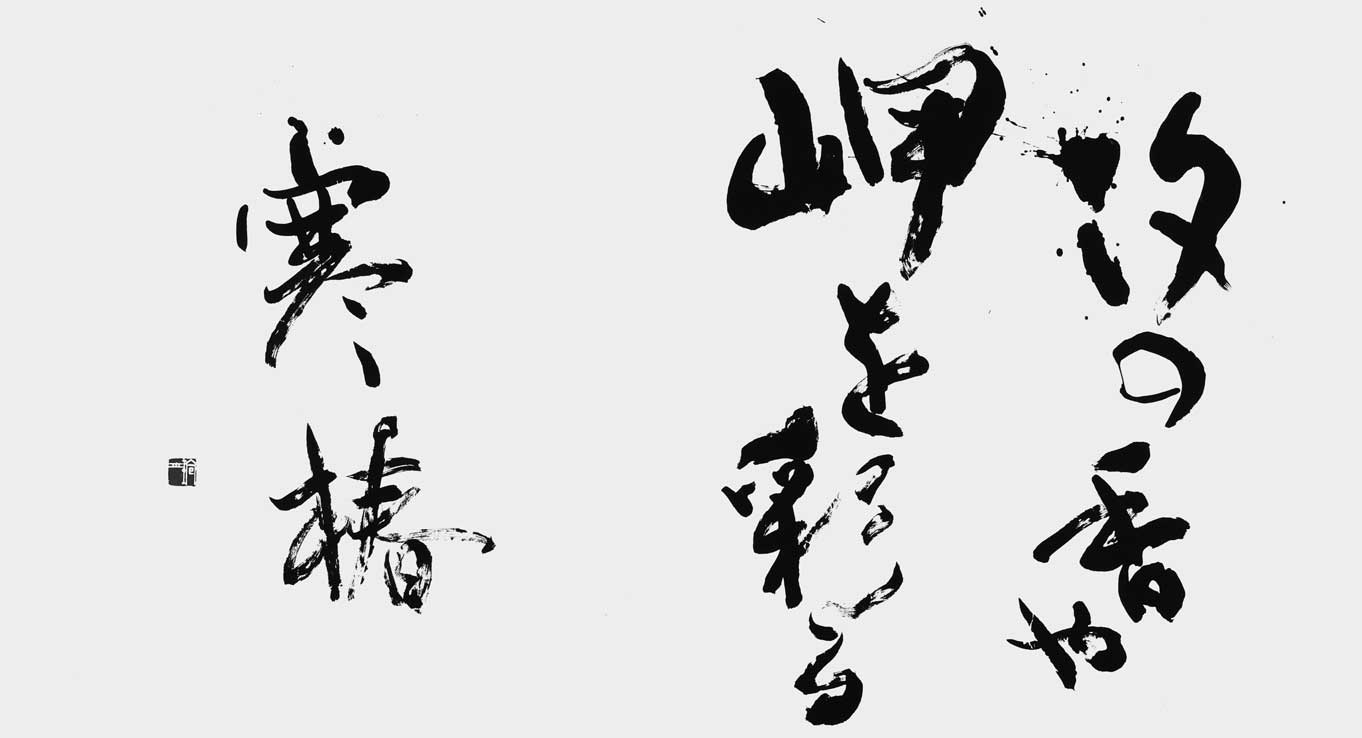 汐の香や
岬を彩る
寒椿